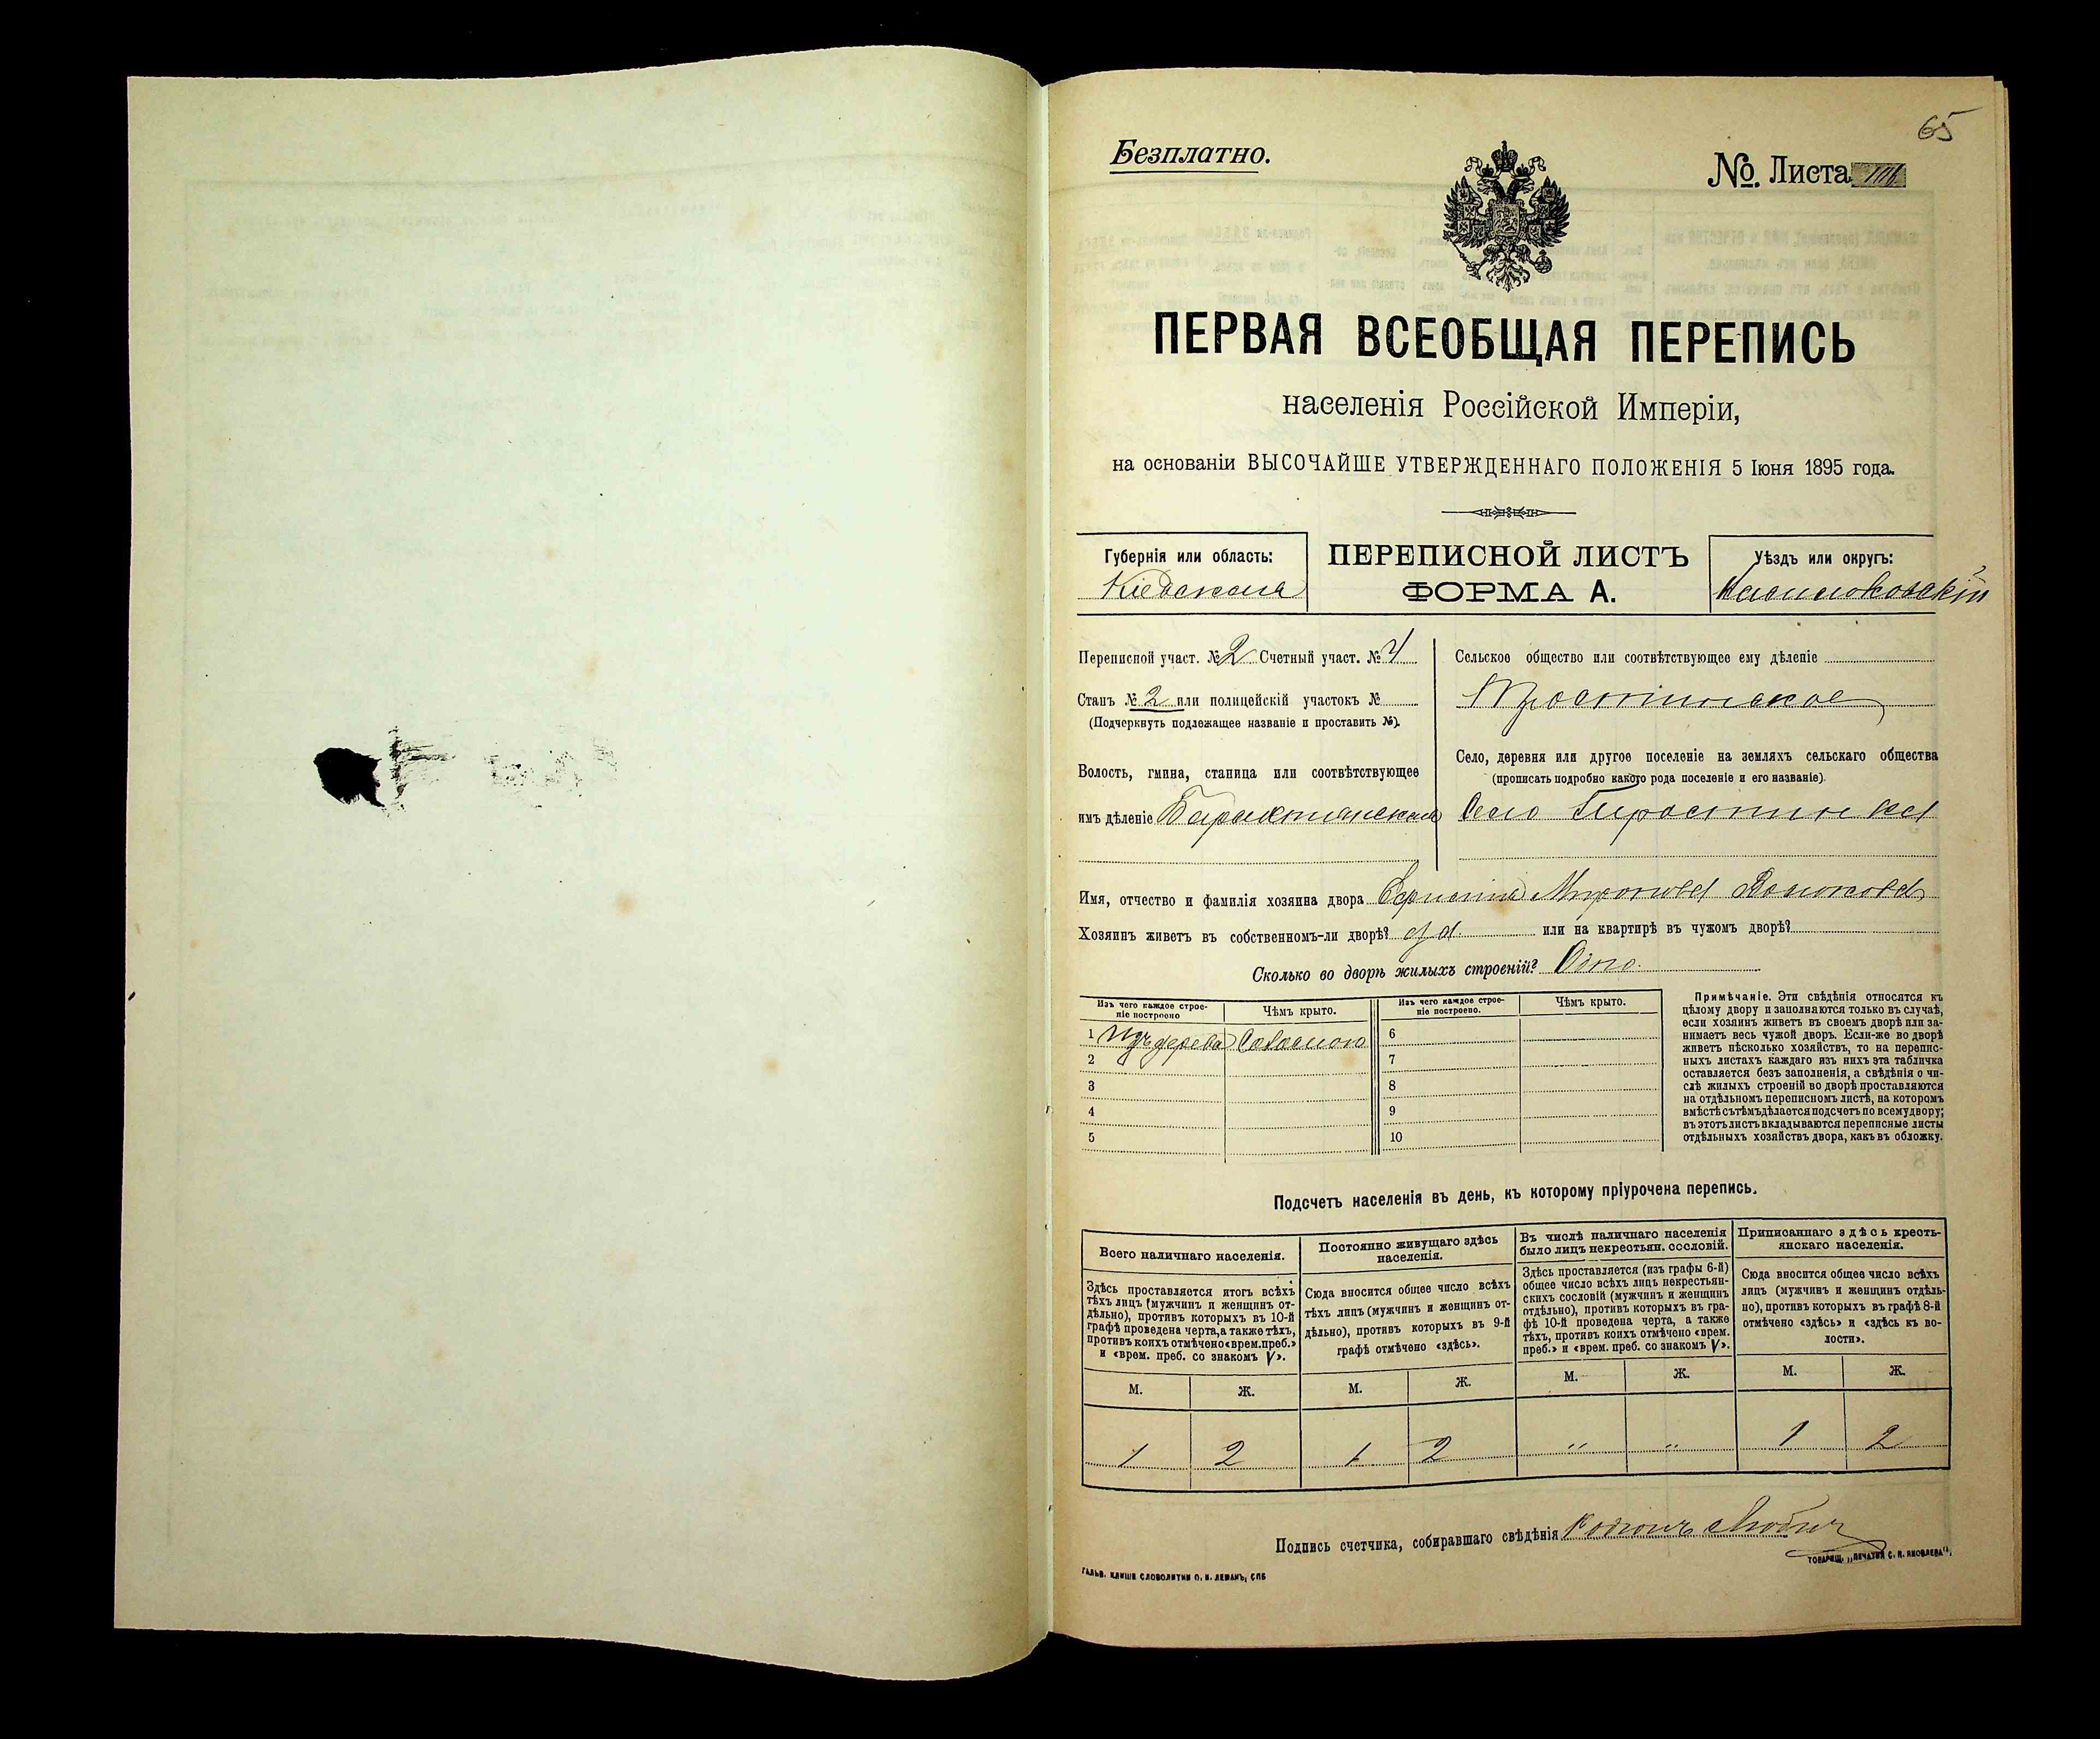 65
Безплатно.
№ Листа
ПЕРВАЯ ВСЕОБЩАЯ ПЕРЕПИСЬ
населенія Россійской Имперіи,
на основаніи ВЫСОЧАЙШЕ УТВЕРЖДЕННАГО ПОЛОЖЕНІЯ 5 Іюня 1895 года.
Губернія или область:
Кіевская
ПЕРЕПИСНОЙ ЛИСТЪ
ФОРМА А.
Уѣздъ или округъ:
Васильковскій
Переписной участ. № 2 Счетный участ. № 4
Станъ № 2 или полицейскій участокъ №
(Подчеркнуть подлежащее названіе и проставить №).
Волость, гмина, станица или соотвѣтствующее
имъ дѣленіе Барахтянская
Сельское общество или соотвѣтствующее ему дѣленіе
Тростинское
Село, деревня или другое поселеніе на земляхъ сельскаго общества
(прописать подробно какого рода поселеніе и его названіе).
Село Тростинка
Имя, отчество и фамилія хозяина двора
Хозяинъ живетъ въ собственномъ-ли дворѣ? или на квартирѣ въ чужомъ дворѣ?
Сколько во дворѣ жилыхъ строеній? Одно.
Изъ чего каждое строе-
ніе построено
Чѣмъ крыто.
Изъ чего каждое строе-
ніе построено.
Чѣмъ крыто.
1 Изъ дерева Соломою 6
2 7
3 8
4 9
5 10
Примѣчаніе. Эти свѣдѣнія относятся къ
цѣлому двору и заполняются только въ случаѣ,
если хозяинъ живетъ въ своемъ дворѣ или за-
нимаетъ весь чужой дворъ. Если-же во дворѣ
живетъ нѣсколько хозяйствъ, то на перепис-
ныхъ листахъ каждаго изъ нихъ эта табличка
оставляется безъ заполненія, а свѣдѣнія о чи-
слѣ жилыхъ строеній во дворѣ проставляются
на отдѣльномъ переписномъ листѣ, на которомъ
вмѣстѣ съ тѣмъ дѣлается подсчетъ по всему двору;
въ этотъ листъ вкладываются переписные листы
отдѣльныхъ хозяйствъ двора, какъ въ обложку.
Подсчетъ населенія въ день, къ которому пріурочена перепись.
Всего наличнаго населенія.
Здѣсь проставляется итогъ всѣхъ
тѣхъ лицъ (мужчинъ и женщинъ от-
дѣльно), противъ которыхъ въ 10-й
графѣ проведена черта, а также тѣхъ,
противъ коихъ отмѣчено «врем. преб.»
и «врем. преб. со знакомъ V».
Постоянно живущаго здѣсь
населенія.
Сюда вносится общее число всѣхъ
тѣхъ лицъ (мужчинъ и женщинъ от-
дѣльно), противъ которыхъ въ 9-й
графѣ отмѣчено «здѣсь».
Въ числѣ наличнаго населенія
было лицъ некрестьян. сословій.
Здѣсь проставляется (изъ графы 6-й)
общее число всѣхъ лицъ некрестьян-
скихъ сословій (мужчинъ и женщинъ
отдѣльно), противъ которыхъ въ гра-
фѣ 10-й проведена черта, а также
тѣхъ, противъ коихъ отмѣчено «врем.
преб.» и «врем. преб. со знакомъ V».
Приписаннаго здѣсь кресть-
янскаго населенія.
Сюда вносится общее число всѣхъ
лицъ (мужчинъ и женщинъ отдѣль-
но), противъ которыхъ въ графѣ 8-й
отмѣчено «здѣсь» и «здѣсь къ во-
лости».
М. Ж. М. Ж. М. Ж. М. Ж.
1 2 1 2 " " 1 2
Подпись счетчика, собиравшаго свѣдѣнія
ГАЛЬВ. КЛИШЕ СЛОВОЛИТНИ О. И. ЛЕМАНЪ, СПБ
ТОВАРИЩ. „ПЕЧАТНЯ С. П. ЯКОВЛЕВА“,